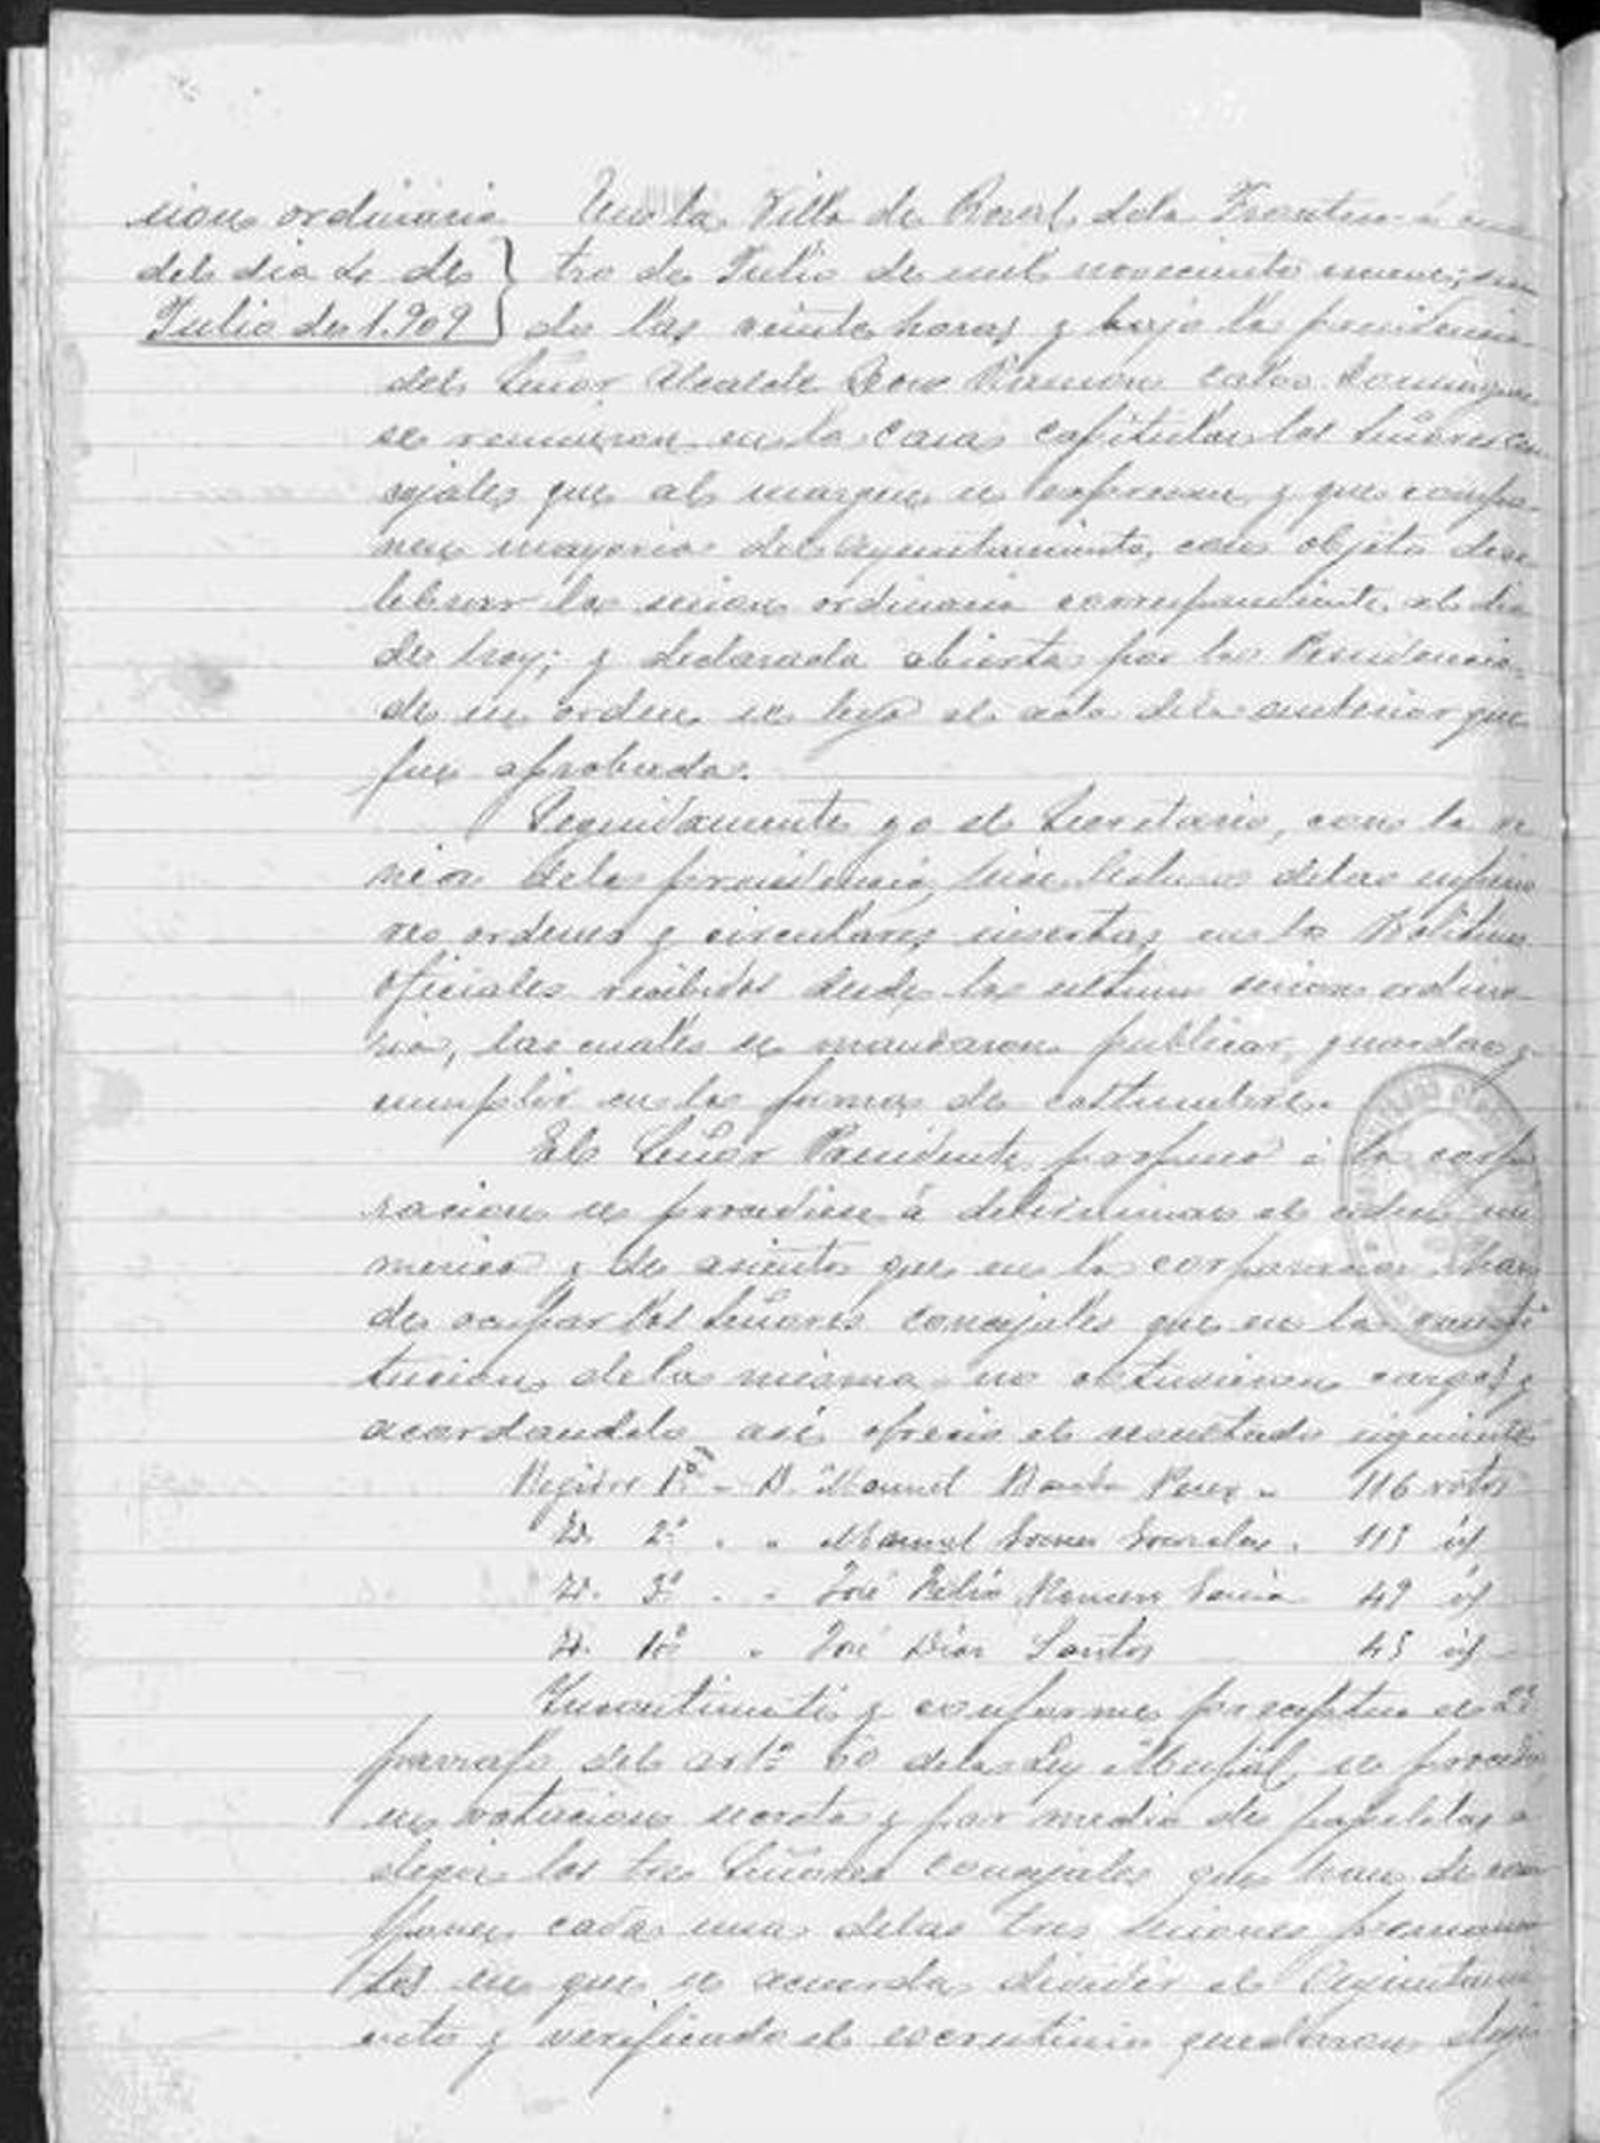 sion ordinaria
del dia 4 de
Julio de 1.909
En la Villa de Rosal dela Frontera á cua
tro de Julio de mil novecientos nueve; sien
do las veinte horas y bajo la presidencia
del Señor Alcalde Don Ramon Calvo Dominguez
se reunieron en la casa capitular los Señores con
cejales que al margen se expresan y que compo-
nen mayoria del Ayuntamiento, con objeto de ce
lebrar la sesion ordinaria correspondiente al dia
de hoy; y declarada abierta por la Presidencia
de su orden se leyó el acta dela anterior que
fue aprobada.
Seguidamente yo el Secretario, con la ve
nia dela presidencia, hice lectura delas superio
res ordenes y circulares insertas en los Boletines
oficiales recibidos desde la ultima sesion ordina-
ria, las cuales se mandaron publicar, guardar y
cumplir en la forma de costumbre.
El Señor Presidente propuso á la corpo
racion se procediese á determinar el orden nu
merico y de asientos que en la corporacion han
de ocupar los Señores concejales que en la consti
tucion dela misma no obtuvieron cargos y
acordandolo asi ofrecio el resultado siguiente
Regidor 1º - D. Manuel Perez - 116 votos
Id. 2º . . Manuel Gonzalez . 115 id
Id. 3º . . José Garcia 49 id
Id. 4º . José Diaz Santos 45 id
Incontinenti y conforme preceptua el 2º
parrafo del artº 60 dela Ley Mupal, se procedió
en votacion secreta y por medio de papeletas a
elegir los tres Señores concejales que han de com
poner cada una delas tres secciones permanen
tes en que se acuerda dividir el Ayuntami
ento y verificado el escrutinio quedaron elegi